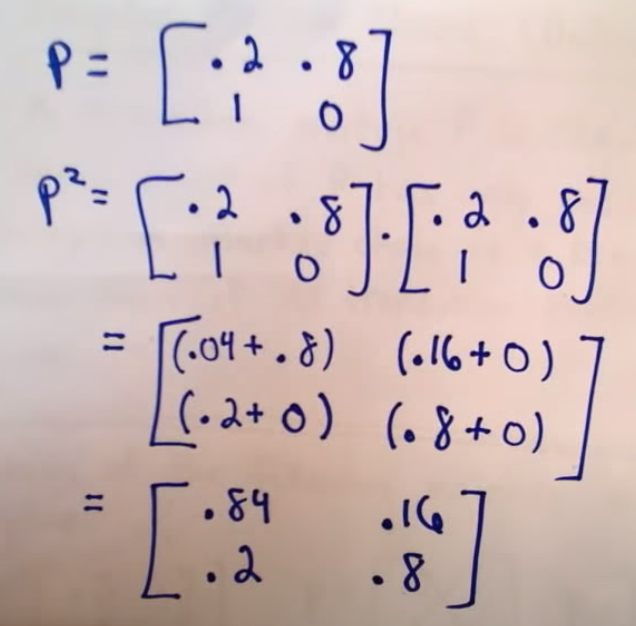 P = [ .2 .8
1 0 ]
P² = [ .2 .8
1 0 ] · [ .2 .8
1 0 ]
= [ (.04 + .8) (.16 + 0)
(.2 + 0) (.8 + 0) ]
= [ .84 .16
.2 .8 ]